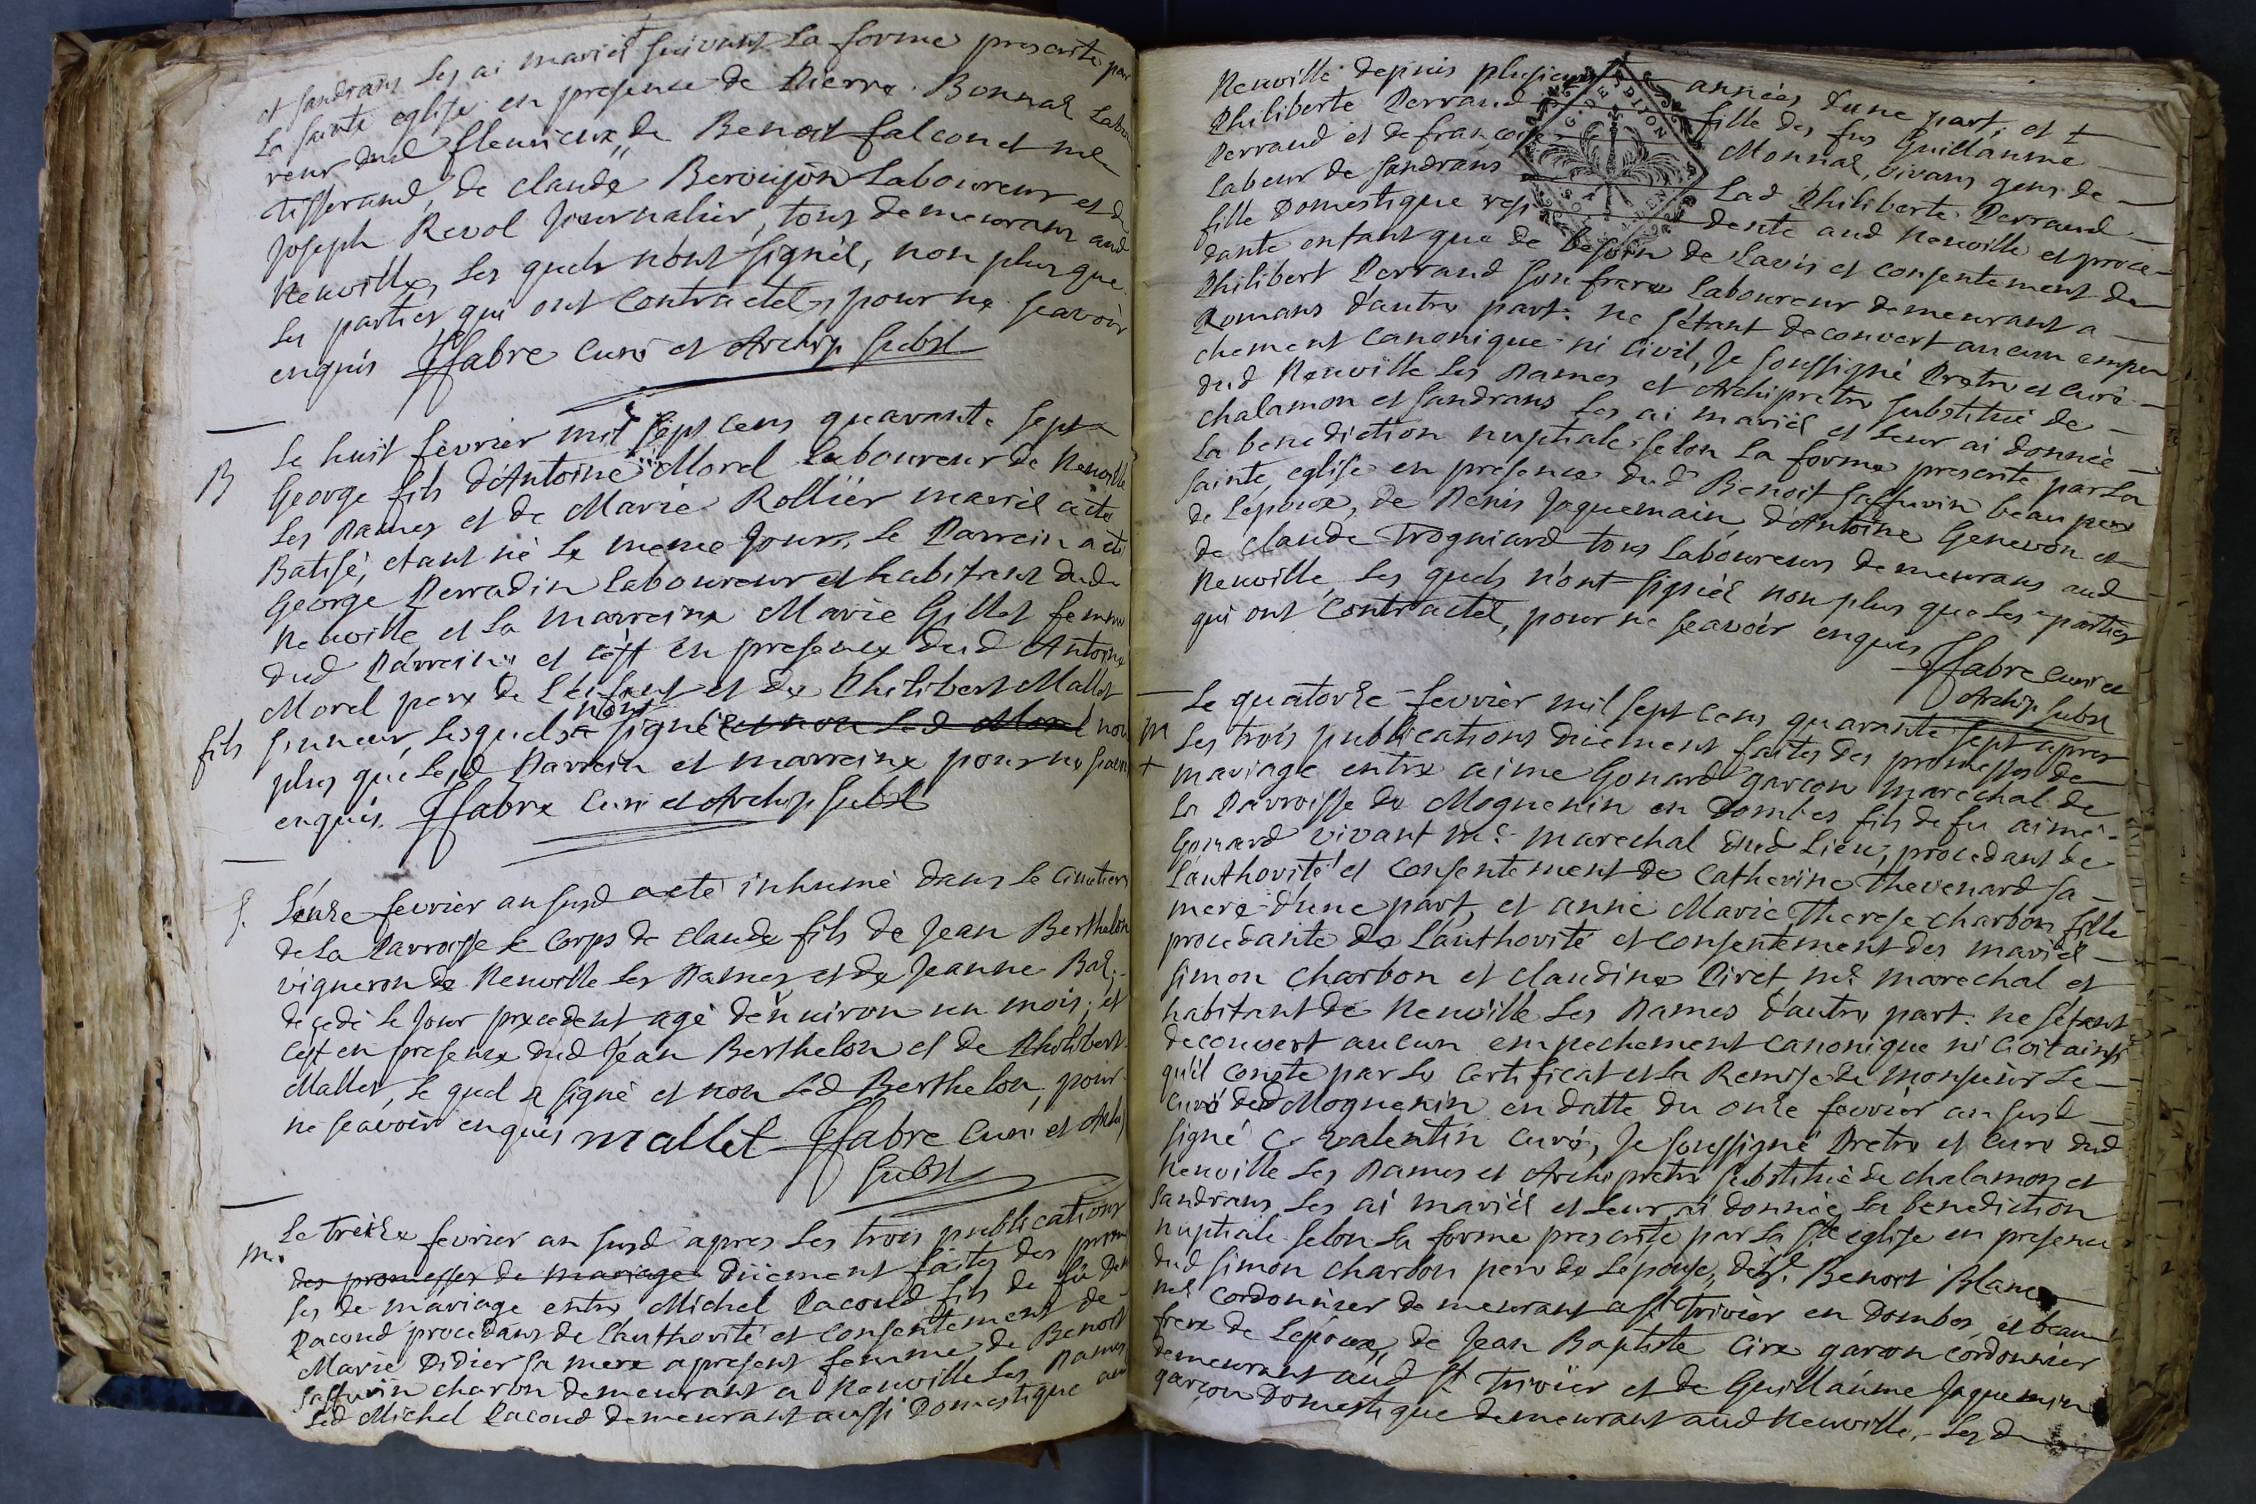 et Sandrans les ai mariés suivant la forme prescrite par
la sainte eglise en presence de Pierre Bonnal Labou
reur dud fleurieux, de Benoit falconet me
tisserand, de claude Beroujon Laboureur et de
Joseph Revol Journalier, tous demeurans aud
Neuville, les quels n'ont signés, non plus que
les parties qui ont contractés, pour ne scavoir
enquis ffabre curé et Archip. subst
B
Le huit fevrier mil sept cens quarante sept
George fils d'Antoine Morel Laboureur de Neuville
les Dames et de Marie Rollier mariés a eté
Batisé, etant né le meme Jour, le Parrein a eté
George Perradin Laboureur et habitant dud
Neuville et la marreine Marie Gillet femme
dud Parrein, et c'est en presence dud Antoine
Morel pere de l'enfant et de Philibert Mallet
fils
sonneur, lesquels n'ont signé et non led Morel non
plus que lesd Parrein et marreine pour ne scavoir
enquis. ffabre curé et Archip subst
S.
L'onze fevrier an susd a eté inhumé dans le cimetiere
de la Parroisse le corps de claude fils de Jean Berthelon
vigneron de Neuville les Dames et de Jeanne Bal
decedé le Jour precedent agé d'environ un mois, et
c'est en presence dud Jean Berthelon et de Philibert
Mallet, le quel a signé et non led Berthelon, pour
ne scavoir enquis mallet ffabre curé et Archip
subst
m.
Le treize fevrier an susd apres les trois publications
des promesses de mariage düement faites des promes
ses de mariage entre Michel Pacoud fils de fû
Pacoud procedant de l'authorité et consentement de
Marie Didier sa mere a present femme de Benoit
charon demeurant a Neuville les Dames
led Michel Pacoud demeurant aussi Domestique aud
Neuville depuis plusieurs années d'une part, et
Philiberte Perraud fille des fus Guillaume
Perraud et de françoise Monnal, vivans gens de
Labeur de Sandrans Lad Philiberte Perraud
fille Domestique residente aud Neuville et proce
dante entant que de besoin de l'avis et consentement de
Philibert Perraud son frere Laboureur demeurant a
Romans d'autre part. ne s'étant decouvert aucun empe
chement canonique ni civil, Je soussigné Pretre et curé
dud Neuville les Dames et Archipretre substitué de
chalamon et Sandrans les ai mariés et leur ai donnée
la benediction nuptiale selon la forme prescrite par la
sainte eglise en presence dud Benoit beau pere
de L'epoux, de Denis Jaquemain, d'Antoine Genevon et
de claude Trogniard tous Laboureurs demeurans aud
Neuville, les quels n'ont signés non plus que les parties
qui ont contractés, pour ne scavoir enquis
ffabre curé et
Archip. subst
m
+
Le quatorze fevrier mil sept cens quarante sept apres
les trois publications düement faites des promesses de
mariage entre aimé Gonard garçon marechal de
la Parroisse de Mognenin en Dombes fils de fu aimé
Gonard vivant me marechal dud Lieu, procedant de
l'authorité et consentement de Catherine Thevenard sa
mere d'une part, et anne Marie Therese charbon fille
procedante de l'authorité et consentement des mariés
simon charbon et claudine Piret, me marechal et
habitant de Neuville les Dames d'autre part. ne s'étant
decouvert aucun empechement canonique ni civil ainsi
qu'il conste par le certificat et la Remise de monsieur le
curé dud Mognenin en datte du onze fevrier an susd
signé C. Valentin curé, Je soussigné Pretre et curé dud
Neuville les Dames et Archipretre substitué de chalamon et
Sandrans les ai mariés et leur ai donnée la benediction
nuptiale selon la forme prescrite par la ste eglise en presence
dud simon charbon pere de L'epouse, de Benoit Blanc
me cordonnier demeurant a st Trivier en Dombes, et beau
frere de L'epoux, de Jean Baptiste Cire garçon cordonnier
demeurant aud st Trivier et de Guillaume Jaquemin
garçon Domestique demeurant aud Neuville. Les d